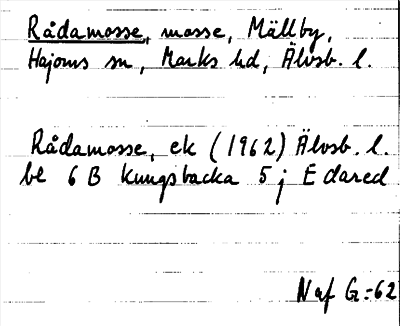 Rådamosse, mosse, Mällby,
Hajoms sn, Marks hd, Älvsb. l.
Rådamosse, ek (1962) Älvsb. l.
bl 6 B Kungsbacka 5 j Edared
N af G:62